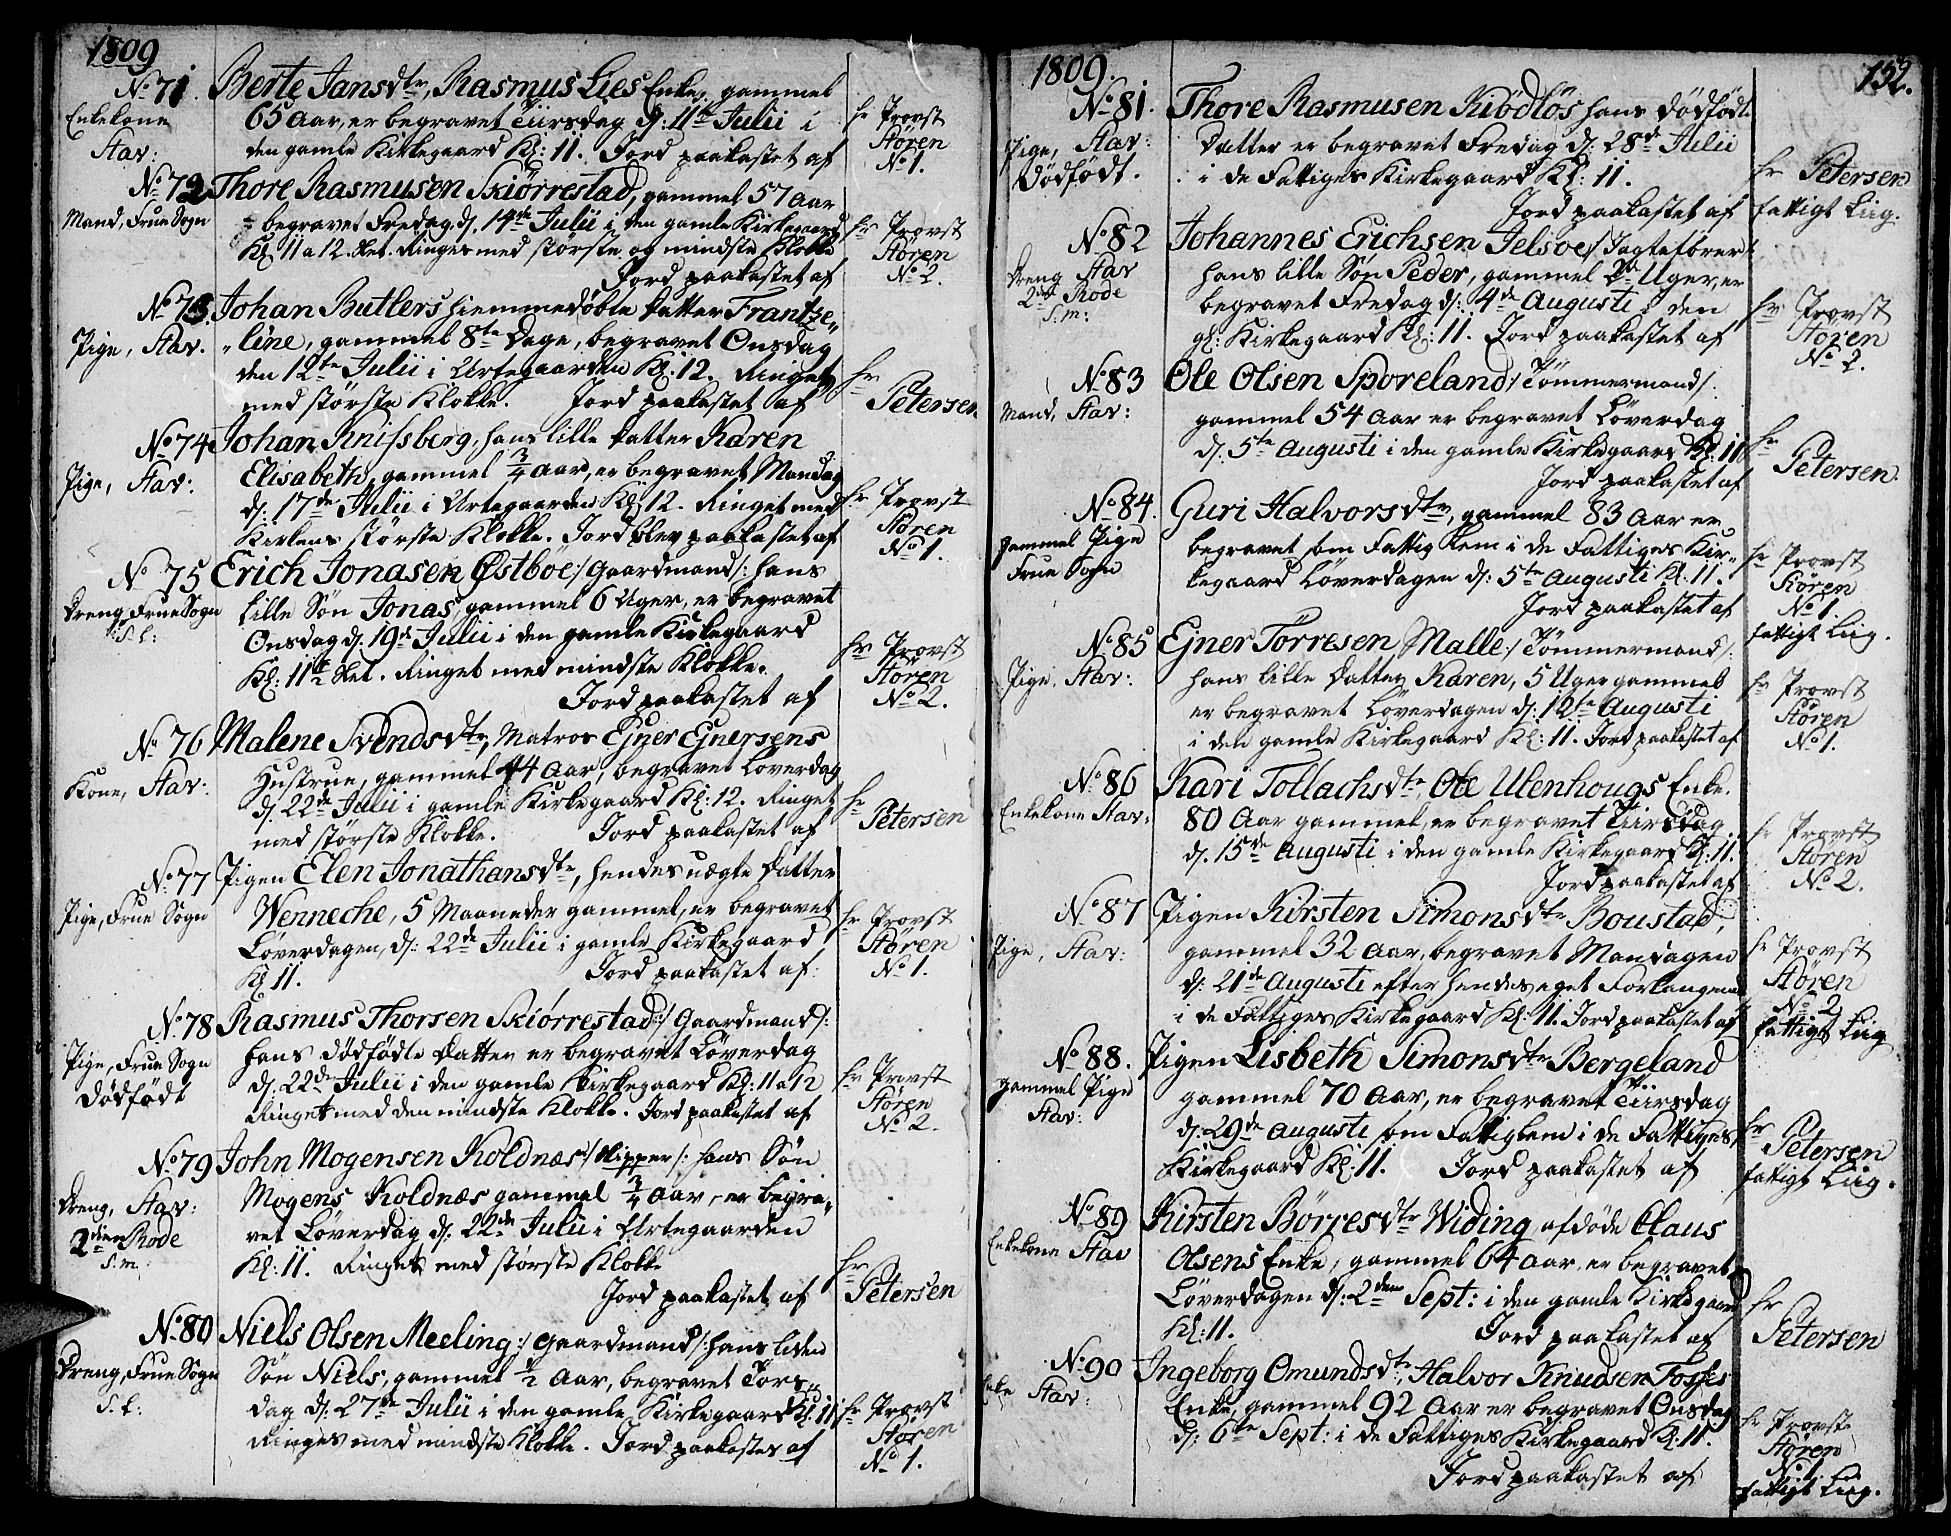 1809
No 71. Berte Jansdtr, Rasmus Lies Enke, gammel
Enkekone 65 Aar, er begravet Tiirsdag d: 11te Julii i hr Provst
Stav: den gamle Kirkegaard Kl: 11. Jord paakastet af Stören
No 1.
No 72 Thore Rasmusen Skiørrestad, gammel 57 Aar
Mand, Frue Sogn begravet Fredag d. 14de Julii i den gamle Kirkegaard hr Provst
Kl 11 a 12. Slet. Ringes med störste og mindste Klokke Stören
Jord paakastet af No 2.
No 73. Johan Butlers hiemmedöbte Datter Frantze„
Pige, Stav. „line, gammel 8te Dage, begravet Onsdag
den 12te Julii i Urtegaarden Kl. 12. Ringet hr
med störste Klokke. Jord paakastet af Petersen
No 74 Johan Knifsberg, hans lille Datter Karen
Pige, Stav: Elisabeth, gammel 3/4 Aar, er begravet Mandag
d. 17de Julii i Urtegaarden Kl 12. Ringet med hr Provst
Kirkens störste Klokke. Jord blev paakastet af Stören
No 1.
No 75 Erich Jonasen Østböe :/ Gaardmand /: hans
Dreng, Frue Sogn lille Sön Jonas, gammel 6 Uger, er begravet
S. l: Onsdag d. 19de Julii i den gamle Kirkegaard hr Provst
Kl: 11 1/2 Slet. Ringet med mindste Klokke. Stören
Jord paakastet af No 2.
No 76 Malene Svendsdtr, Matros Ejner Ejnersens
Kone, Stav: Hustrue, gammel 44 Aar, begravet Löverdag
d. 22de Julii i gamle Kirkegaard Kl: 12. Ringet hr
med störste Klokke. Jord paakastet af Petersen
No 77 Pigen Elen Jonathansdtr, hendes uægte Datter
Pige, Frue Sogn Wenneche, 5 Maaneder gammel, er begravet hr Provst
Löverdagen, d: 22de Julii i gamle Kirkegaard Stören
Kl 11. Jord paakastet af: No 1.
No 78 Rasmus Thorsen Skiørrestad :/ Gaardmand /:
Pige, Frue Sogn hans dödfödte Datter er begravet Löverdag
Dödfödt d. 22de Julii i den gamle Kirkegaard Kl: 11 a 12 hr Provst
Ringet med den mindste Klokke. Jord paakastet af Stören
No 2.
No 79 John Mogensen Koldnæs :/ Skipper /: hans Sön
Dreng, Stav: Mogens Koldnæs gammel 3/4 Aar, er begra„
2den Rode vet Löverdag d. 22de Julii i Urtegaarden
S. m. Kl: 11. Ringet med störste Klokke hr
Jord paakastet af Petersen
No 80 Niels Olsen Meeling :/ Gaardmand /: hans liden
Dreng, Frue Sogn Sön Niels, gammel 1/2 Aar, begravet Tors„
S. l: dag d: 27de Julii i den gamle Kirkegaard Kl: 11 hr Provst
Ringes med mindste Klokke. Jord paakastes af Stören
No 1.
1809. 132.
No 81. Thore Rasmusen Kiödlös hans dödfödte
Pige, Stav: Datter er begravet Fredag d: 28de Julii
Dödfödt. i de Fattiges Kirkegaard Kl: 11. hr Petersen
Jord paakastet af fattigt Liig.
No 82 Johannes Erichsen Jelsøe :/ Jagtefører:
Dreng Stav hans lille Sön Peder, gammel Uger, er
2de Rode begravet Fredag d: 4de Augusti i den hr Provst
S. m: gl: Kirkegaard Kl: 11. Jord paakastet af Stören
No 2.
No 83 Ole Olsen Sporeland :/ Tömmermand /:
Mand, Stav: gammel 54 Aar er begravet Löverdag
d. 5te Augusti i den gamle Kirkegaard Kl: 11 hr
Jord paakastet af Petersen.
No 84. Guri Halvorsdtr, gammel 83 Aar er
gammel Pige begravet som Fattig Lem i de Fattiges Kir„ hr Provst
Frue Sogn kegaard Löverdagen d: 5te Augusti Kl: 11. Stören
Jord paakastet af No 1.
fattigt Liig.
No 85 Ejner Torresen Malle :/ Tömmermand /:
Pige, Stav: hans lille Datter Karen, 5 Uger gammel hr Provst
er begravet Löverdagen d: 12te Augusti Stören
i den gamle Kirkegaard Kl: 11. Jord paakastet af No 1.
No 86 Kari Tollachsdtr Ole Ulenhougs Enke.
Enkekone Stav: 80 Aar gammel, er begravet Tiirsdag hr Provst
d. 15de Augusti i den gamle Kirkegaard Kl: 11. Stören
Jord paakastet af No 2.
No 87 Pigen Kirsten Simonsdtr Boustad,
Pige, Stav: gammel 32 Aar, begravet Mandagen hr Provst
d: 21de Augusti efter hendes eget Forlangende Stören
i de Fattiges Kirkegaard Kl: 11. Jord paakastet af No 2
fattigt Liig
No 88. Pigen Lisbeth Simonsdtr Bergeland
gammel Pige gammel 70 Aar, er begravet Tiirsdag
Stav: d: 29de Augusti som Fattiglem i de Fattiges hr Petersen
Kirkegaard Kl: 11. Jord paakastet af fattigt Liig.
No 89 Kirsten Börresdtr Widing afdöde Claus
Enkekone Stav Olsens Enke, gammel 64 Aar, er begravet
Löverdagen d: 2den Sept: i den gamle Kirkegaard hr
Kl: 11. Jord paakastet af Petersen
No 90 Ingeborg Omundsdtr, Halvor Knudsen Tosses
Enke Stav: Enke, gammel 92 Aar er begravet Onsdag hr Provst
d: 6te Sept: i de Fattiges Kirkegaard Kl: 11. Stören
Jord paakastet af No 1.
fattigt Liig.